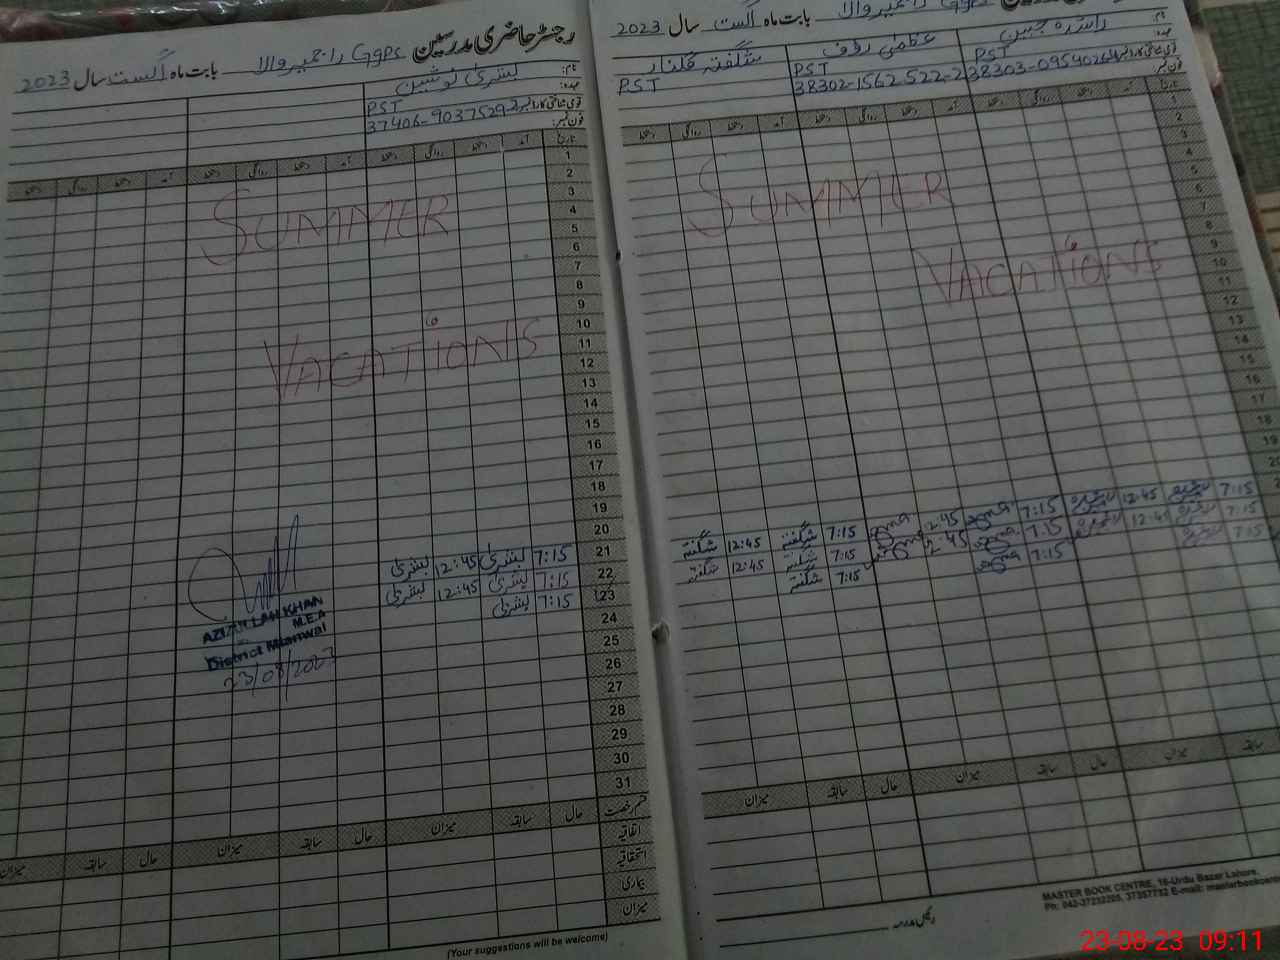 رجسٹر حاضری مدرسین GGPS رانجھیر والا بابت ماہ اگست سال 2023
نام: بشریٰ نوشین
عہدہ: PST
قومی شناختی کارڈ نمبر 37406-9037529-2
فون نمبر:
تاریخ آمد دستخط روانگی دستخط آمد دستخط روانگی دستخط آمد دستخط روانگی دستخط
1
2
3
4
5
SUMMER
6
7
8
9
10
11
VACATIONS
12
13
14
15
16
17
18
19
20
21 7:15 بشریٰ 12:45 بشریٰ
22 7:15 بشریٰ 12:45 بشریٰ
23 7:15 بشریٰ
24
25
26
27
28
29
30
31
KHAN
M.E.A
District Mianwali
23/08/2023
قسم رخصت حال سابقہ میزان حال سابقہ میزان حال سابقہ میزان
اتفاقیہ
استحقاقیہ
بیماری
میزان
(Your suggestions will be welcome)
بابت ماہ اگست سال 2023
نام: راشدہ جبیں
PST
عظمیٰ رؤف
PST
38302-1562522-2
شگفتہ گلنار
PST
تاریخ آمد دستخط روانگی دستخط آمد دستخط روانگی دستخط آمد دستخط روانگی دستخط
1
2
3
4
5
6
SUMMER
7
8
9
10
VACATIONS
11
12
13
14
15
16
17
18
19
7:15 12:45 7:15 12:45 7:15 شگفتہ 12:45 شگفتہ
7:15 12:45 7:15 12:45 7:15 شگفتہ 12:45 شگفتہ
7:15 7:15 7:15 شگفتہ
سابقہ میزان حال سابقہ میزان حال سابقہ میزان
MASTER BOOK CENTRE, 16-Urdu Bazar Lahore.
Ph: 042-37232265, 37357732 E-mail:
رئیس مدرسہ
23-08-23 09:11